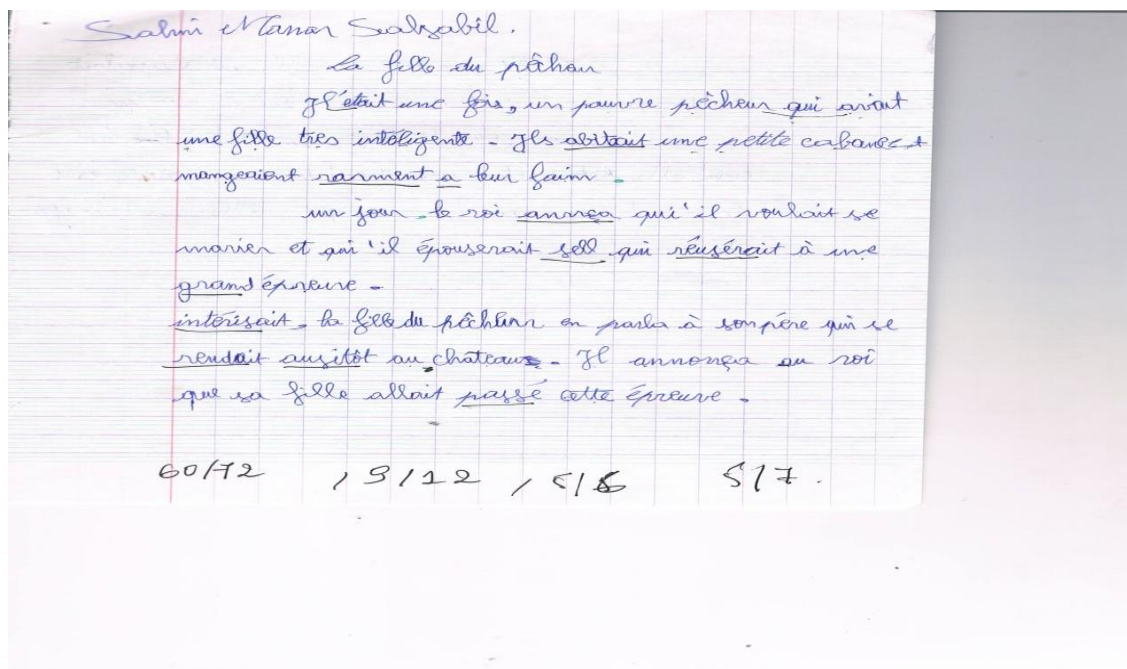 Salmi Manar Salsabil.
La fille du pâheur
Il était une fois, un pauvre pêcheur qui avait
une fille très inteligente. Ils abitait une petite cabane et
mangeaient rarment a leur faim.
un jour, le roi annça qui'il voulait se
marier et qui'il épouserait sell qui réusérait à une
grand épreuve.
intérisait, la fille du pêcheur en parla à son père qui se
rendait ausitôt au château. Il annonça au roi
que sa fille allait passé cette épreuve.
60/72 , 9/12 , 5/6 5/7.